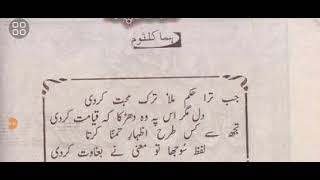 ہما کلثوم
جب ترا حکم ملا ترک محبت کردی
دل مگر اس پہ وہ دھڑکا کہ قیامت کردی
تجھ سے کس طرح اظہارِ تمنا کرتا
لفظ سُوجھا تو معنی نے بغاوت کردی